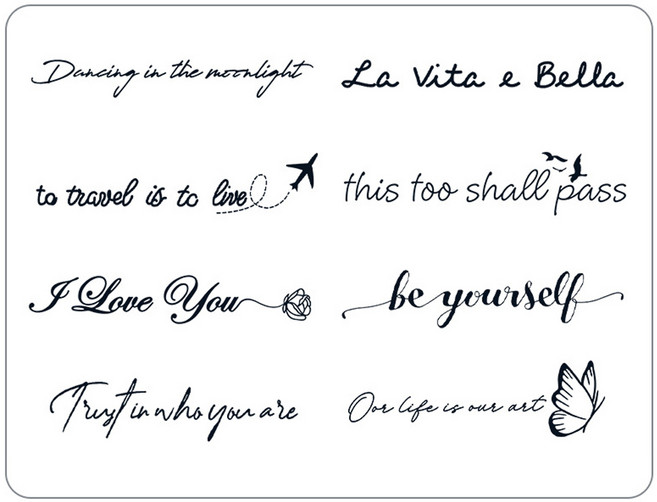 Dancing in the moonlight
La Vita e Bella
to travel is to live
this too shall pass
I Love You
be yourself
Trust in who you are
Oor life is our art